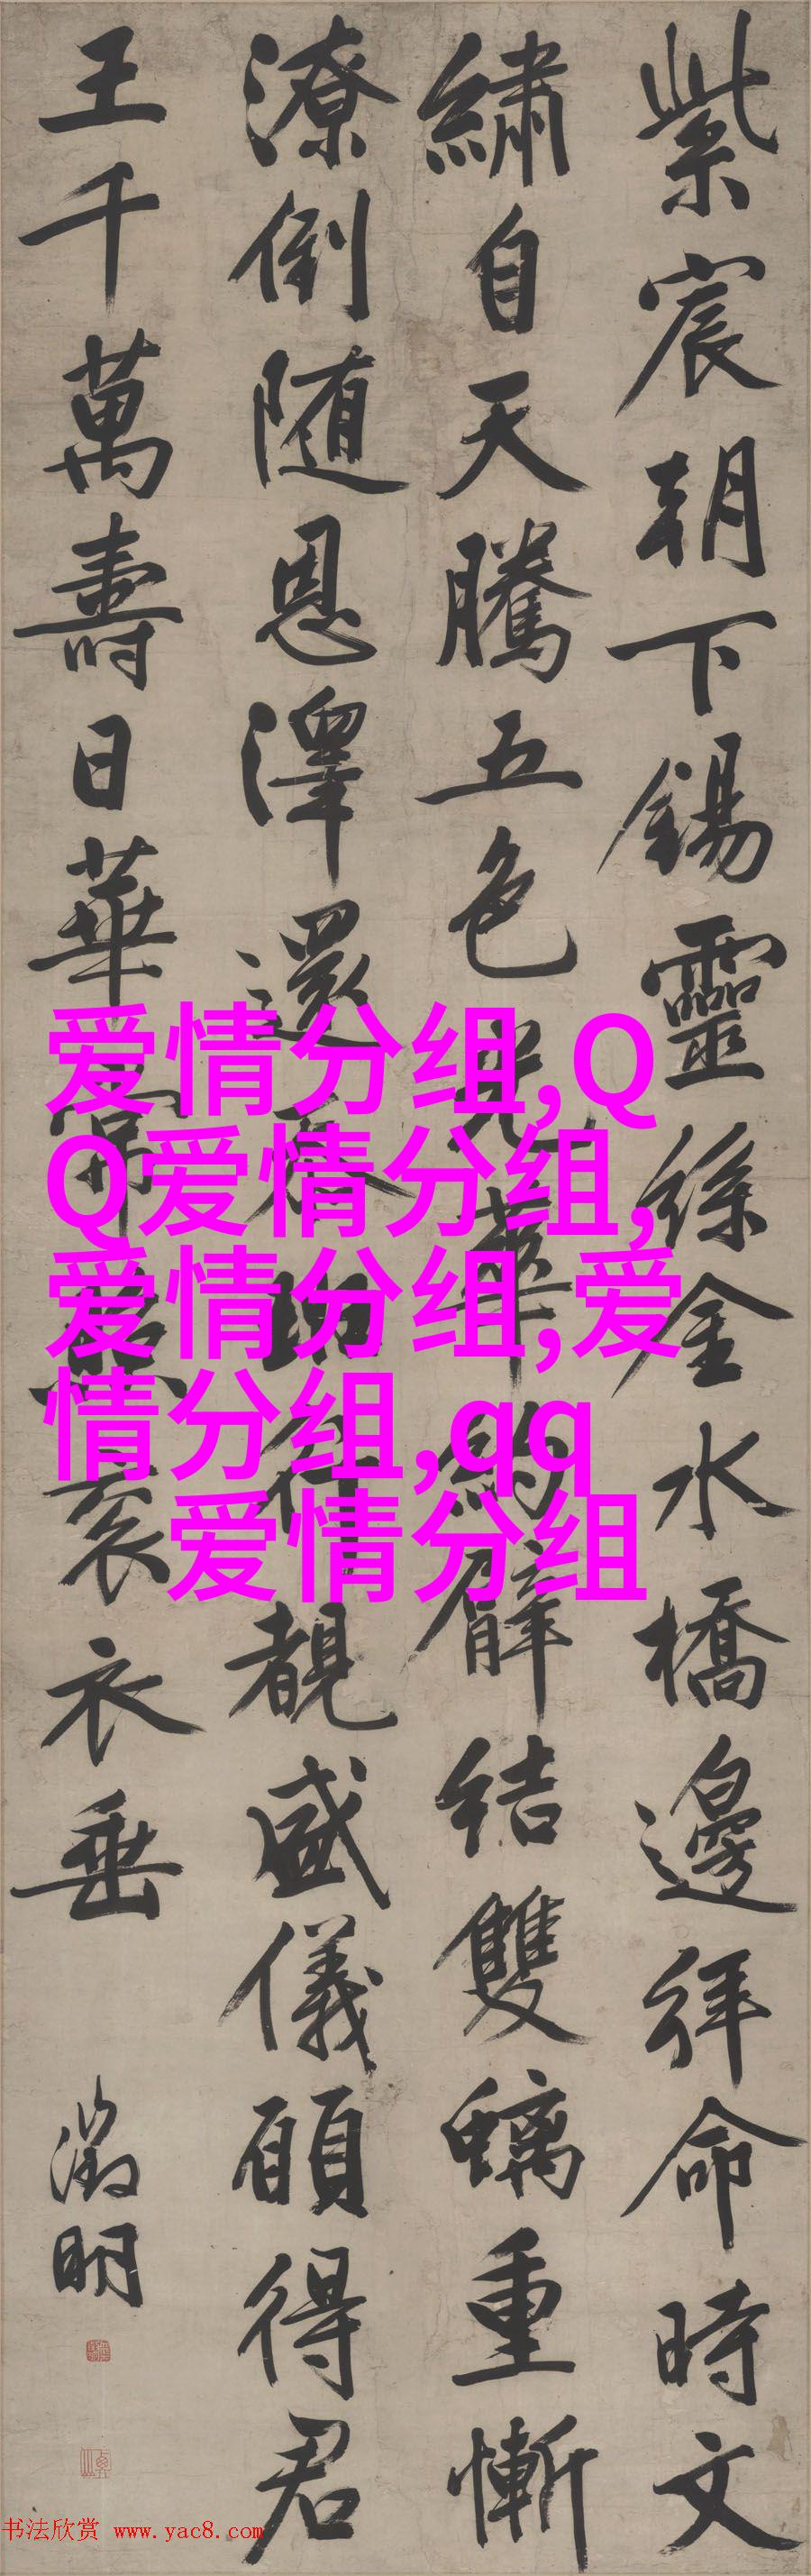 紫宸朝下錫靈絲金水橋邊拜命時文
繡自天騰五色光華約臂結雙螭重慚
潦倒随恩澤還行覩盛儀願得君
王千萬壽日華常袞衣垂
徵明
爱情分组,Q
Q爱情分组,
爱情分组,爱
情分组,qq
爱情分组
书法欣赏 www.yac8.com